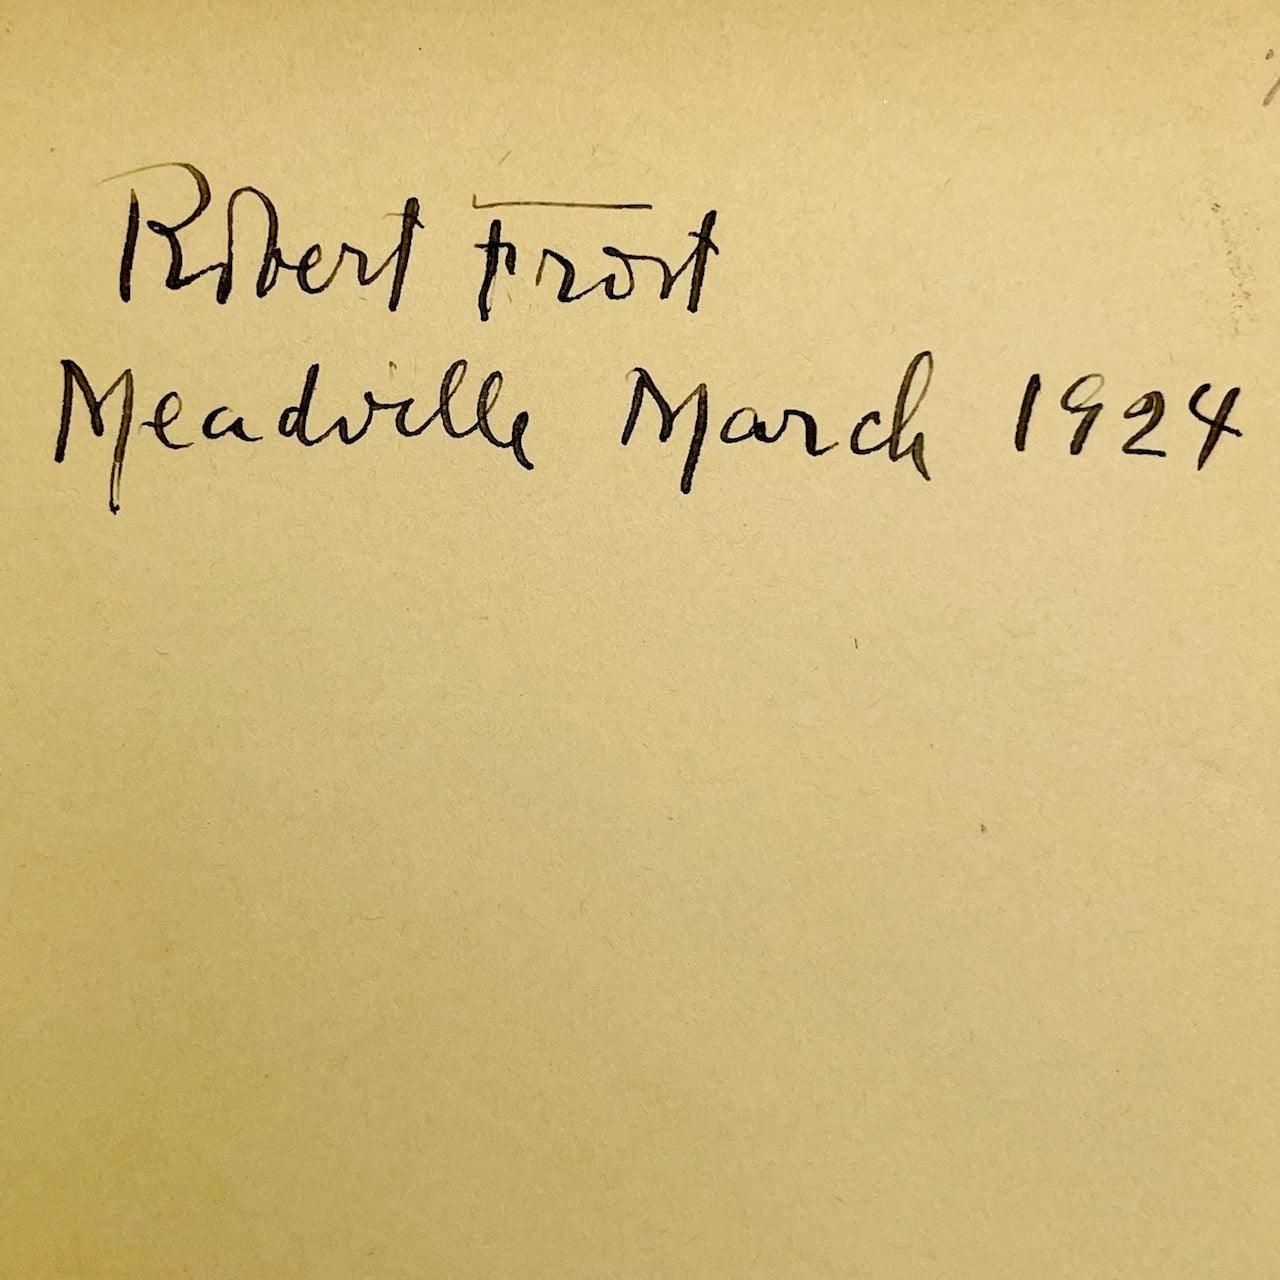 Robert Frost
Meadville March 1924